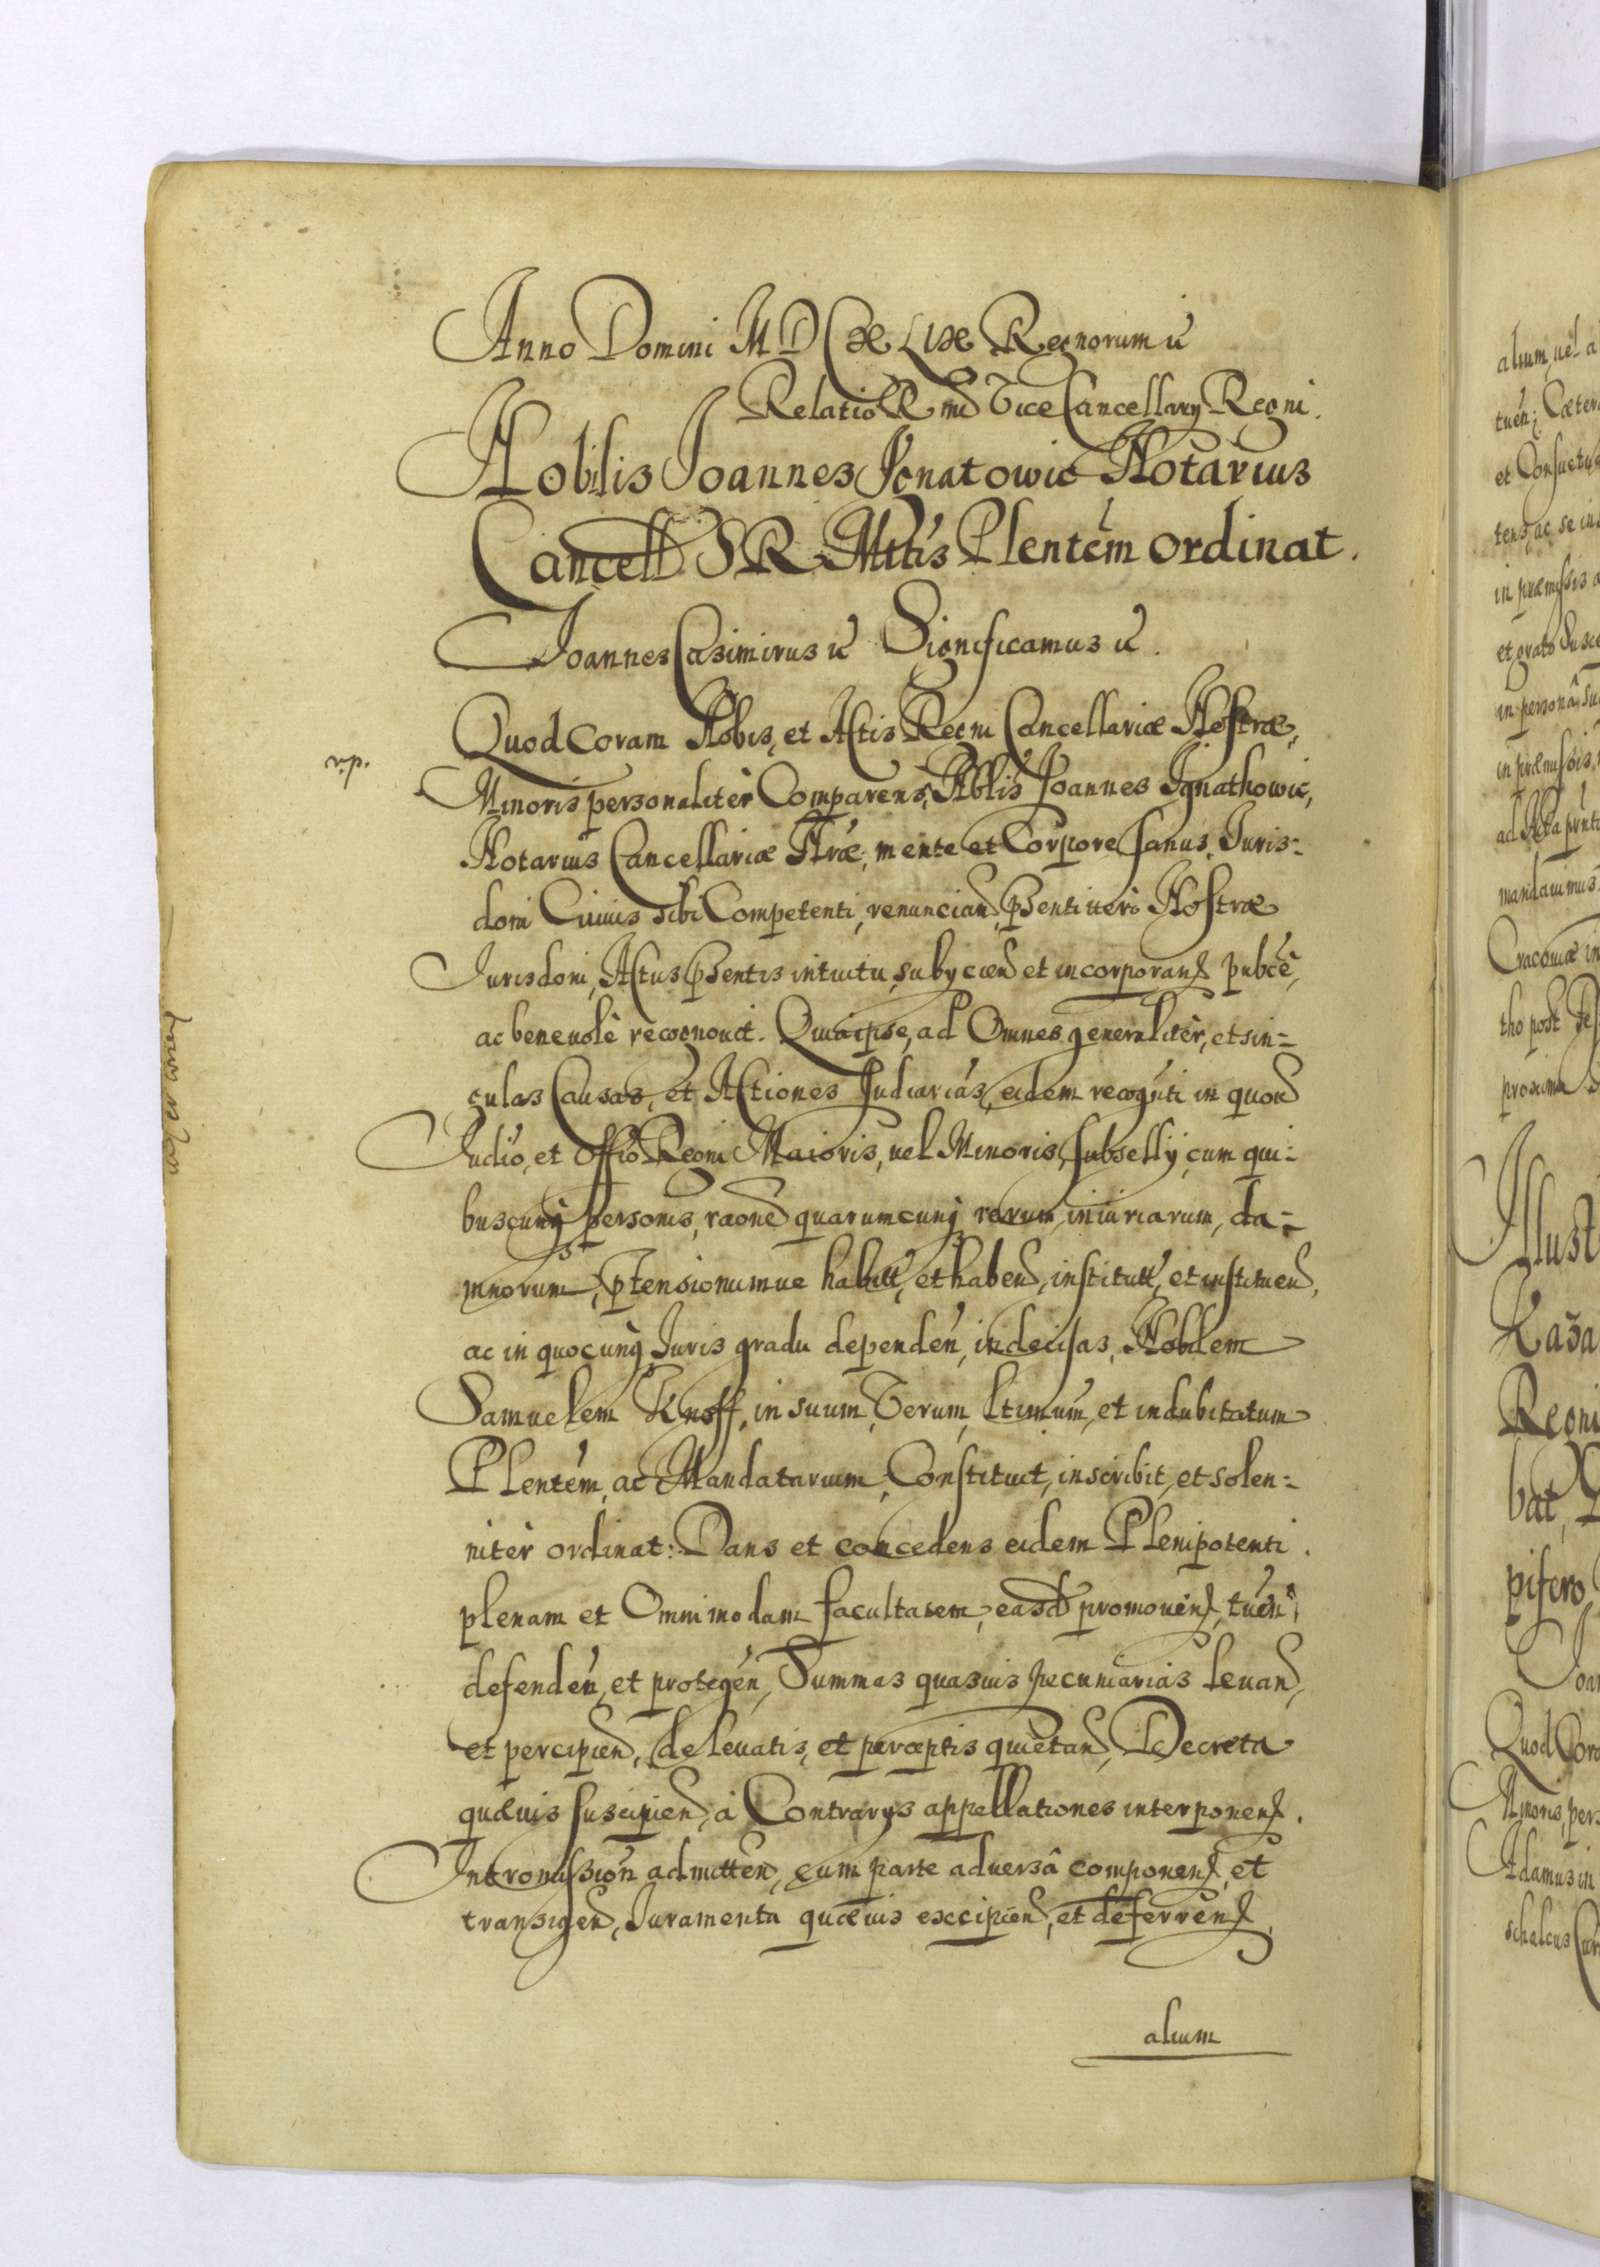 Anno Domini M D C XLIX Regnorum
Relatio R md Vice Cancellarij Regni.
Nobilis Joannes Ignatowic Notarius
Cancell S R Mttis Plentem ordinat.
Joannes Casimirus Significamus
Quod Coram Nobis, et Actis Regni Cancellariæ Nostræ,
Minoris personaliter Comparens, Nblis Joannes Ignathowic,
Notarius Cancellariæ Nræ, mente et Corpore sanus, Juris-
doni Cuiuis sibi Competenti, renuncian, psenti uero Nostræ
Jurisdoni, Actus psentis intuitu, subijcien et incorporan pubce,
ac beneuolè recognouit. Quia ipse, ad Omnes generaliter, et sin-
gulas Causas, et Actiones Judiarias, eidem recognti in quou
Judio, et Offio Regni Maioris, uel Minoris, subsellij, cum qui-
buscunq personis, raone quarumcunq rerum, iniuriarum, da-
mnorum, ptensionumue habitt, et haben, institutt, et instituen,
ac in quocunq Juris gradu dependen, indecisas, Nobilem
Samuelem Knoff, in suum, Verum, Ltimum, et indubitatum
Plentem, ac Mandatarium, Constituit, inscribit, et solen-
niter ordinat: Dans et concedens eidem Plenipotenti
plenam et Omnimodam facultatem, easd promouen, tuen,
defenden, et protegen, Summas quasuis pecuniarias leuan,
et percipien, de leuatis, et perceptis quietan, Decreta
quæuis suscipien, à Contrarijs appellationes interponen.
Intromission admitten, cum parte aduersâ componen, et
transigen, Juramenta quæuis excipien, et deferren,
alium
r.p.
alium, uel a
tuen; Cæter
et Consuetu
tens, ac se in
in præmissis a
et grato Susce
in personâ su
in præmissis,
ad Acta pnti
mandauimus.
Cracouiæ in
tho post Fes
proxima
Illust
Kaza
Regni
bat,
pifero
Joan
Quod Cora
Minoris, pers
Adamus in
schalcus Cur